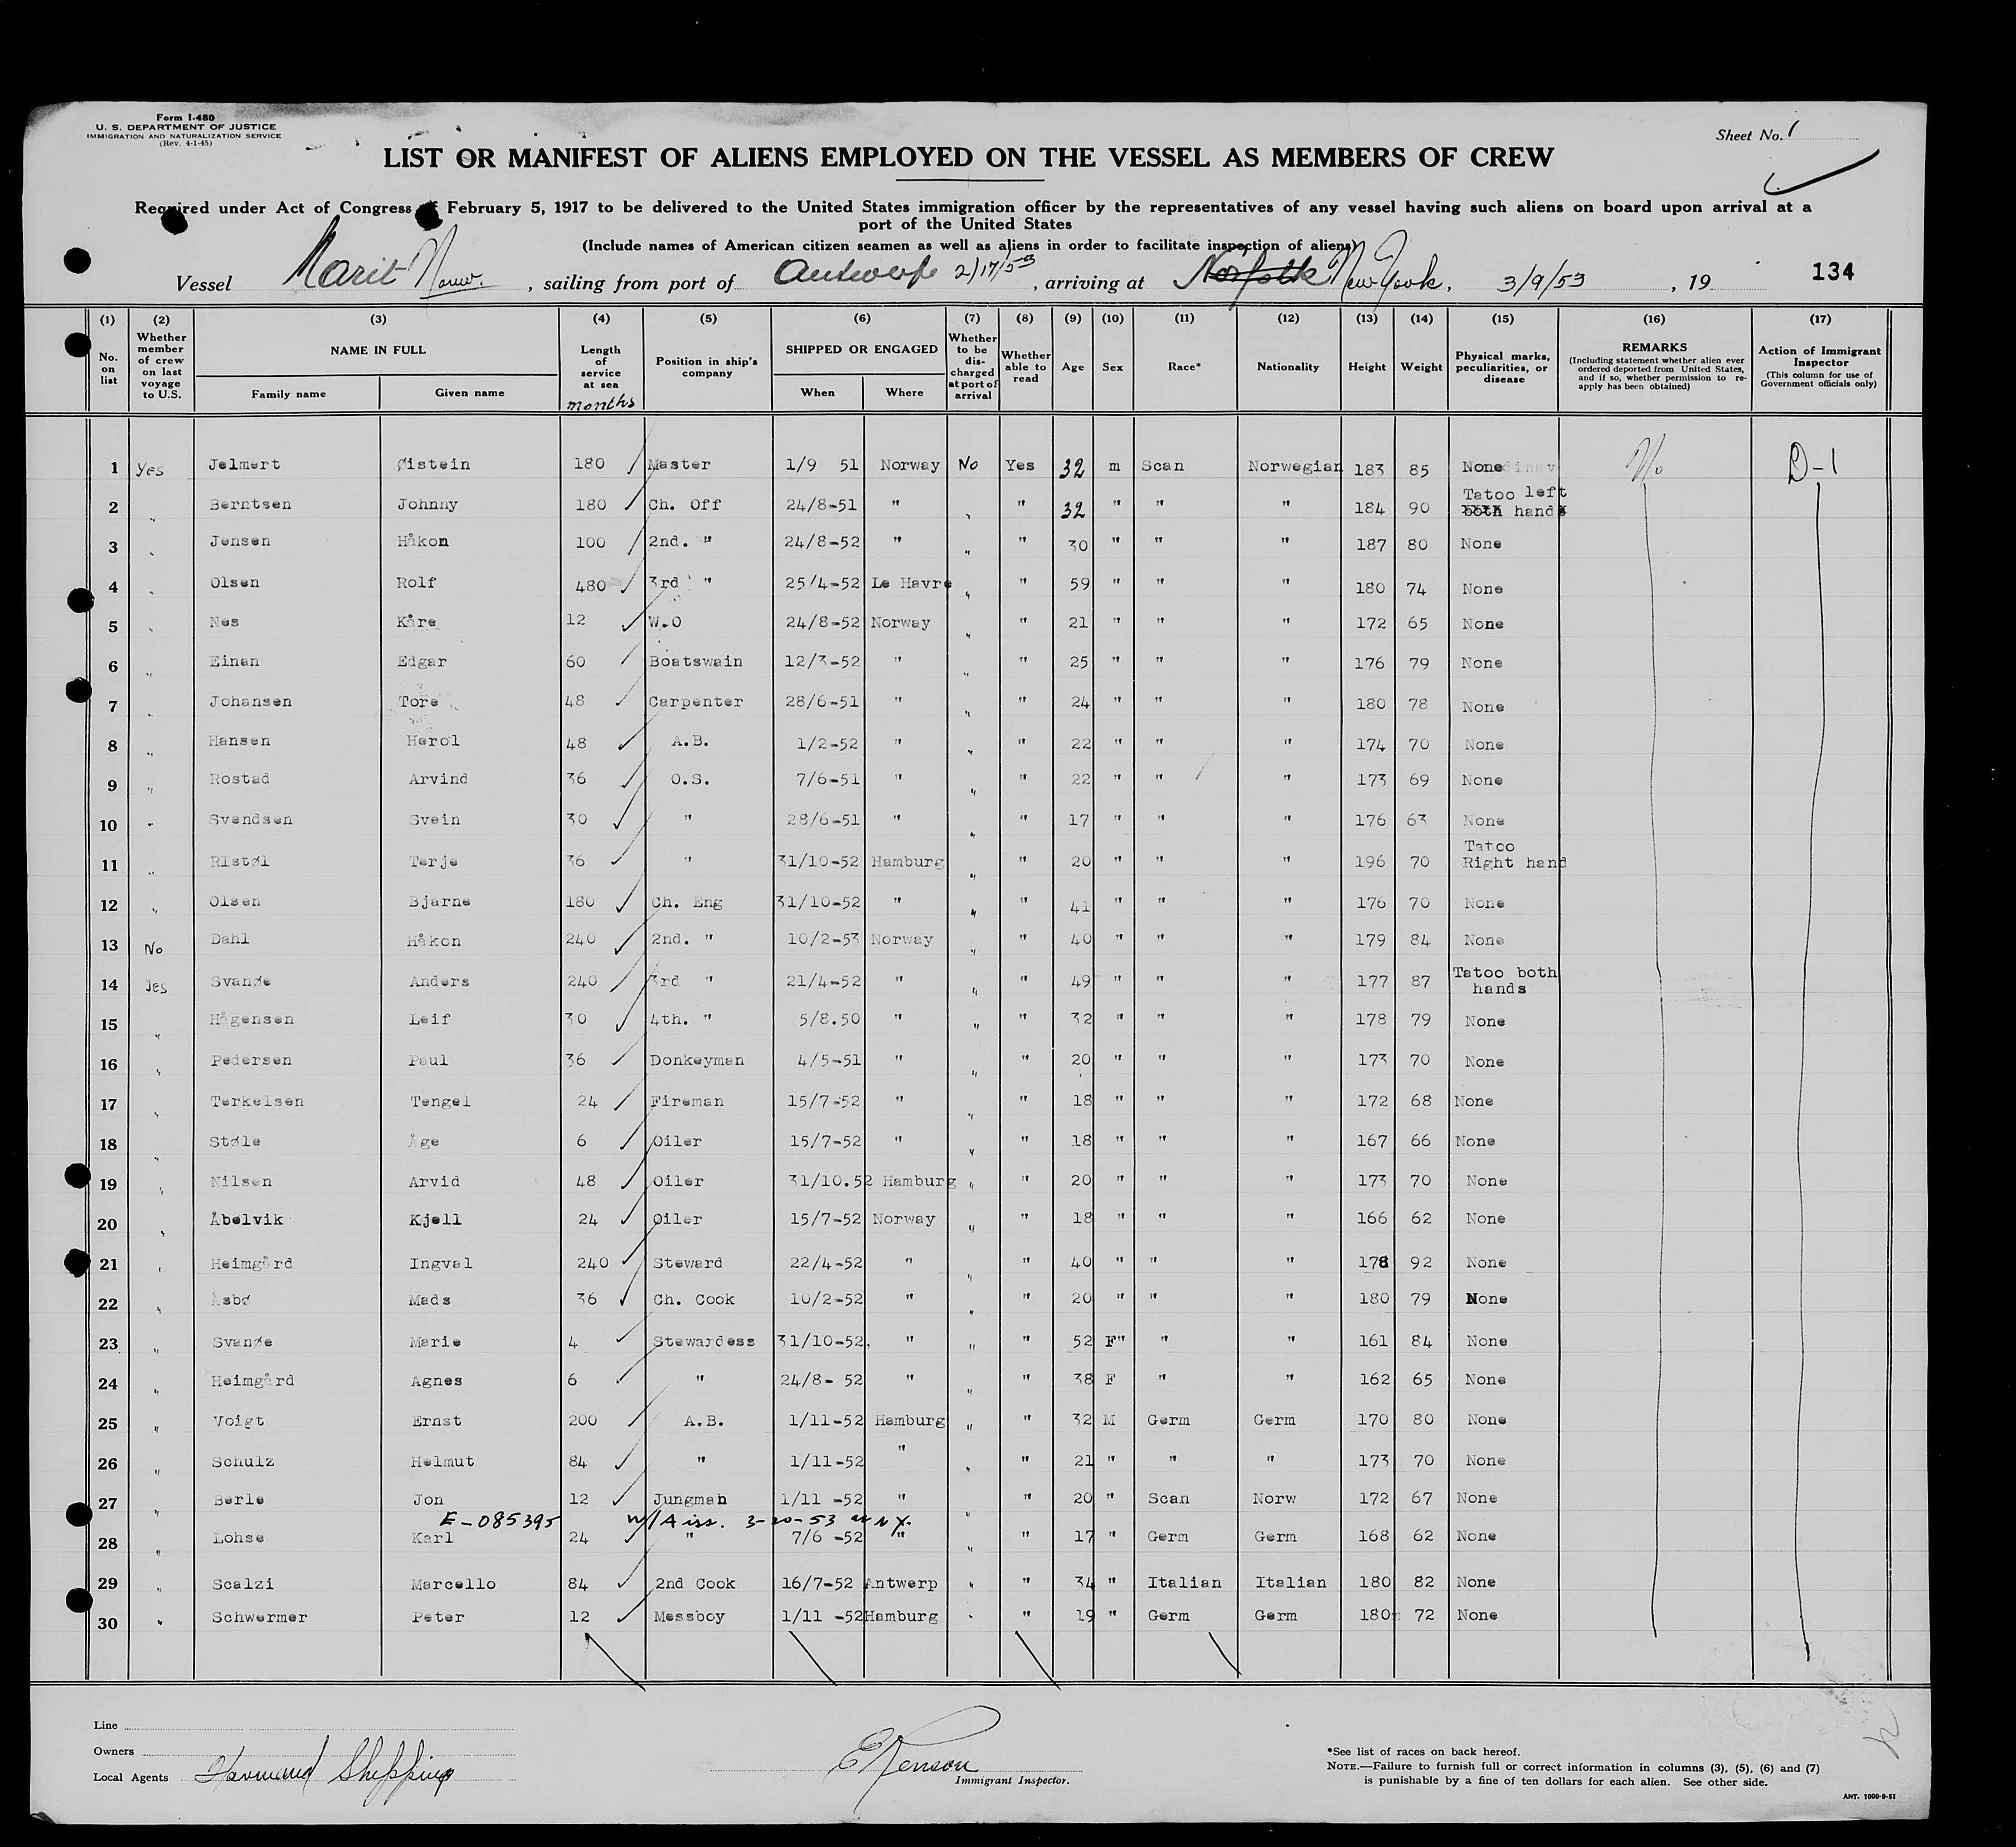 Form I-480
U. S. DEPARTMENT OF JUSTICE
IMMIGRATION AND NATURALIZATION SERVICE
(Rev. 4-1-45)
Sheet No. 1
LIST OR MANIFEST OF ALIENS EMPLOYED ON THE VESSEL AS MEMBERS OF CREW
Required under Act of Congress of February 5, 1917 to be delivered to the United States immigration officer by the representatives of any vessel having such aliens on board upon arrival at a
port of the United States
(Include names of American citizen seamen as well as aliens in order to facilitate inspection of aliens)
Vessel Marit Norw. , sailing from port of Antwerp 2/17/53 , arriving at Norfolk New York, 3/9/53 , 19 134
(1) (2) (3) (4) (5) (6) (7) (8) (9) (10) (11) (12) (13) (14) (15) (16) (17)
No. on list
Whether member of crew on last voyage to U.S.
NAME IN FULL
Family name Given name
Length of service at sea
months
Position in ship's company
SHIPPED OR ENGAGED
When Where
Whether to be discharged at port of arrival
Whether able to read
Age Sex Race* Nationality Height Weight
Physical marks, peculiarities, or disease
REMARKS
(Including statement whether alien ever ordered deported from United States, and if so, whether permission to re-apply has been obtained)
Action of Immigrant Inspector
(This column for use of Government officials only)
1 Yes Jelmert Øistein 180 Master 1/9 51 Norway No Yes 32 m Scan Norwegian 183 85 None No D-1
2 " Berntsen Johnny 180 Ch. Off 24/8-51 " " " 32 " " " 184 90 Tatoo left both hands
3 " Jensen Håkon 100 2nd. " 24/8-52 " " " 30 " " " 187 80 None
4 " Olsen Rolf 480 3rd " 25/4-52 Le Havre " " 59 " " " 180 74 None
5 " Nes Kåre 12 W.O 24/8-52 Norway " " 21 " " " 172 65 None
6 " Einan Edgar 60 Boatswain 12/3-52 " " " 25 " " " 176 79 None
7 " Johansen Tore 48 Carpenter 28/6-51 " " " 24 " " " 180 78 None
8 " Hansen Harol 48 A.B. 1/2-52 " " " 22 " " " 174 70 None
9 " Rostad Arvind 36 O.S. 7/6-51 " " " 22 " " " 173 69 None
10 " Svendsen Svein 30 " 28/6-51 " " " 17 " " " 176 63 None
11 " RIstøl Terje 36 " 31/10-52 Hamburg " " 20 " " " 196 70 Tatoo Right hand
12 " Olsen Bjarne 180 Ch. Eng 31/10-52 " " " 41 " " " 176 70 None
13 No Dahl Håkon 240 2nd. " 10/2-53 Norway " " 40 " " " 179 84 None
14 Yes Svanøe Anders 240 3rd " 21/4-52 " " " 49 " " " 177 87 Tatoo both hands
15 " Hågensen Leif 30 4th. " 5/8.50 " " " 32 " " " 178 79 None
16 " Pedersen Paul 36 Donkeyman 4/5-51 " " " 20 " " " 173 70 None
17 " Terkelsen Tengel 24 Fireman 15/7-52 " " " 18 " " " 172 68 None
18 " Støle Åge 6 Oiler 15/7-52 " " " 18 " " " 167 66 None
19 " Nilsen Arvid 48 Oiler 31/10.52 Hamburg " " 20 " " " 173 70 None
20 " Åbelvik Kjell 24 Oiler 15/7-52 Norway " " 18 " " " 166 62 None
21 " Heimgård Ingval 240 Steward 22/4-52 " " " 40 " " " 178 92 None
22 " Åsbø Mads 36 Ch. Cook 10/2-52 " " " 20 " " " 180 79 None
23 " Svanøe Marie 4 Stewardess 31/10-52, " " " 52 F" " " 161 84 None
24 " Heimgård Agnes 6 " 24/8- 52 " " " 38 F " " 162 65 None
25 " Voigt Ernst 200 A.B. 1/11-52 Hamburg " " 32 M Germ Germ 170 80 None
26 " Schulz Helmut 84 " 1/11-52 " " " 21 " " " 173 70 None
27 " Berle Jon 12 Jungman 1/11 -52 " " " 20 " Scan Norw 172 67 None
E-085395 w/A iss. 3-20-53 at N.Y.
28 " Lohse Karl 24 " 7/6 -52 " " " 17 " Germ Germ 168 62 None
29 " Scalzi Marcello 84 2nd Cook 16/7-52 Antwerp " " 34 " Italian Italian 180 82 None
30 " Schwermer Peter 12 Messboy 1/11 -52 Hamburg " " 19 " Germ Germ 180 72 None
Line
Owners
Local Agents Shipping
Immigrant Inspector.
*See list of races on back hereof.
NOTE.—Failure to furnish full or correct information in columns (3), (5), (6) and (7)
is punishable by a fine of ten dollars for each alien. See other side.
ANT. 1000-9-51